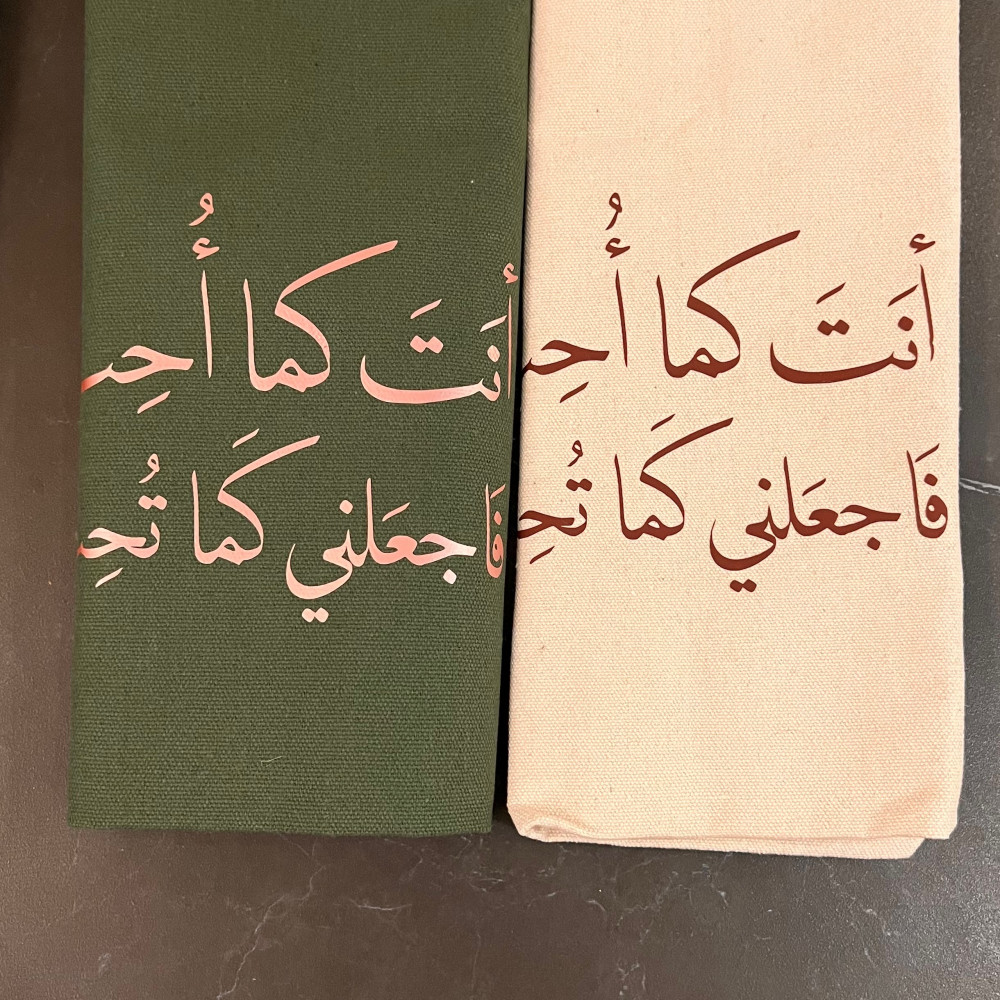 أنَتَ كما أُحِـ
فَاجعَلني كَما تُحِـ
أنَتَ كما أُحِـ
فَاجعَلني كَما تُحِـ